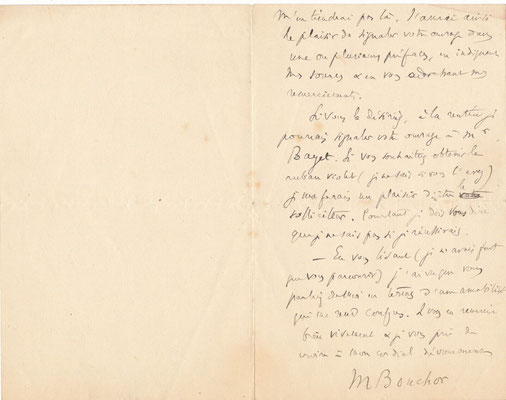 m'en tiendrai pas là. J'aurai ainsi
le plaisir de signaler votre ouvrage dans
une ou plusieurs préfaces, en indiquant
mes sources & en vous adressant mes
remerciements.
Si vous le désirez, à la rentrée je
pourrais signaler votre ouvrage à Mr
Bayet. Si vous souhaitiez obtenir le
ruban violet (je ne sais si vous l'avez)
je me ferais un plaisir de le
solliciter. Pourtant je dois vous dire
que je ne sais pas si je réussirais.
— En vous lisant (je n'avais fait
que vous parcourir) j'ai vu que vous
parliez de moi en termes d'une amabilité
qui me rend confus. Je vous en remercie
bien vivement & je vous prie de
croire à mon cordial dévouement
M Bouchor